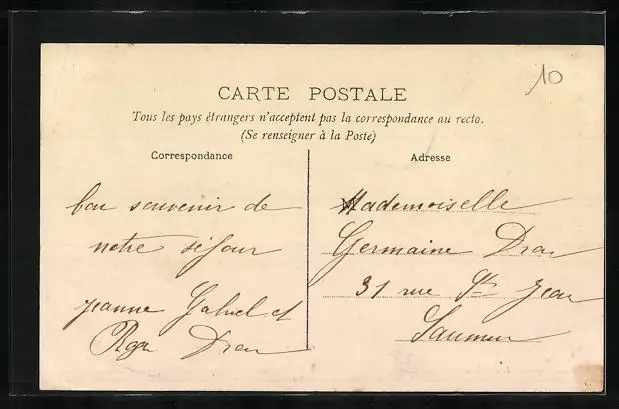 10
CARTE POSTALE
Tous les pays étrangers n'acceptent pas la correspondance au recto.
(Se renseigner à la Poste)
Correspondance
Adresse
bon souvenir de
notre séjour
Jeanne Gabriel et
Mademoiselle
Germaine
31 rue St Jean
Saumur